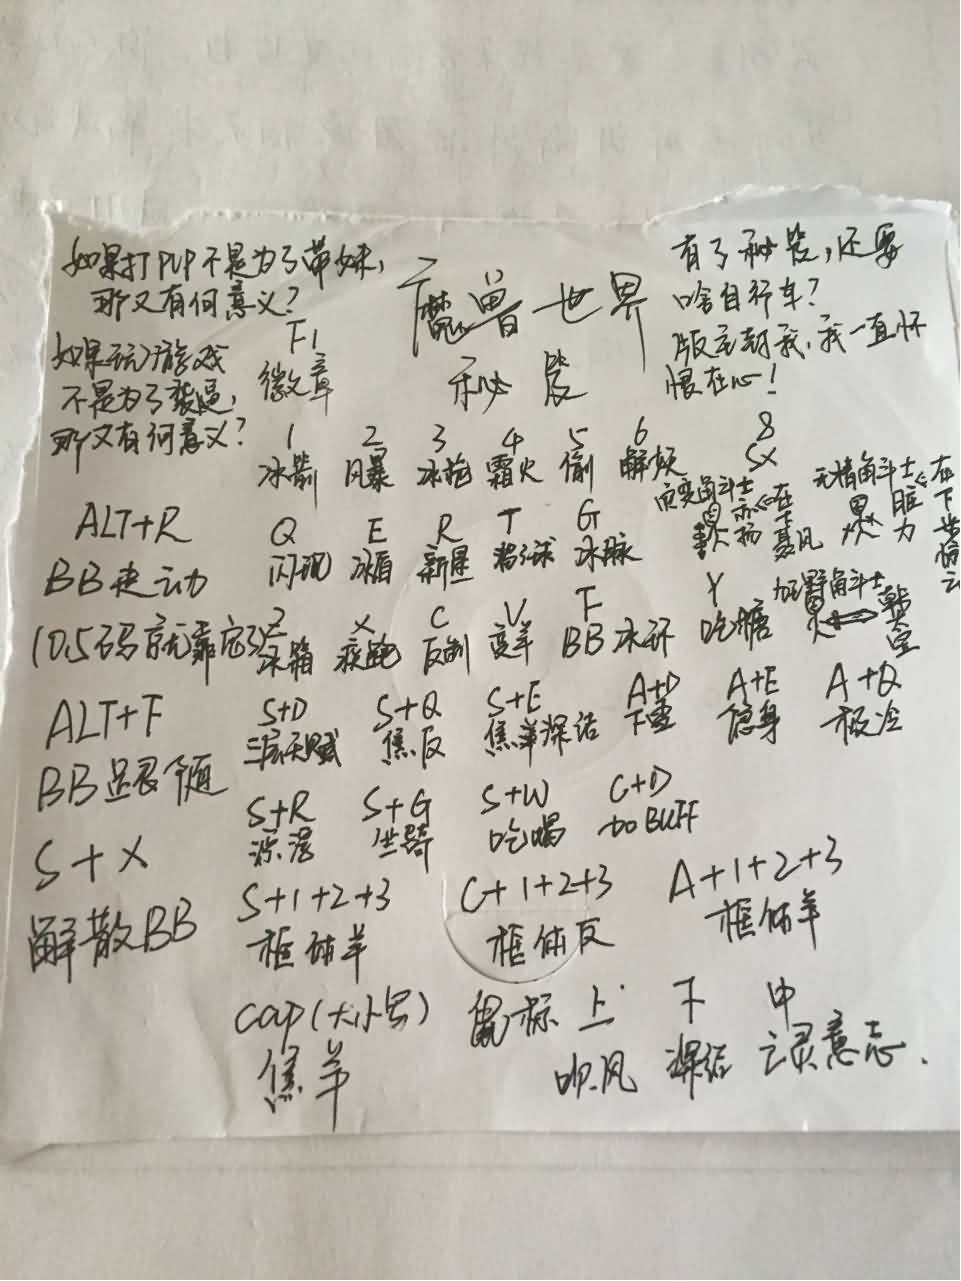 如果打PVP不是为了带妹,
那又有何意义?
如果玩游戏
不是为了装逼,
那又有何意义?
魔兽世界
秘笈
有了秘笈,还要
啥自行车?
版主封我,我一直怀
恨在心!
F1
徽章
1 2 3 4 5 6 8
冰箭 风暴 冰枪 霜火 偷 解妖 SX
ALT+R
BB走动
Q E R T G
闪现 冰盾 新星 冰脉
角斗士
无情角斗士
(0.5码就靠它)
Z X C V F Y
冰箱 疾跑 反制 变羊 BB冰环 吃糖
角斗士
ALT+F
BB跟随
S+D S+Q S+E A+D A+E A+Q
三层天赋 焦反 焦羊深结 下雪 隐身 极冷
S+X
解散BB
S+R S+G S+W C+D
漂浮 坐骑 吃喝 +o BUFF
S+1+2+3 C+1+2+3 A+1+2+3
框体羊 框体反 框体羊
cap(大小写)
焦羊
鼠标上 下 中
吹风 深结 亡灵意志.